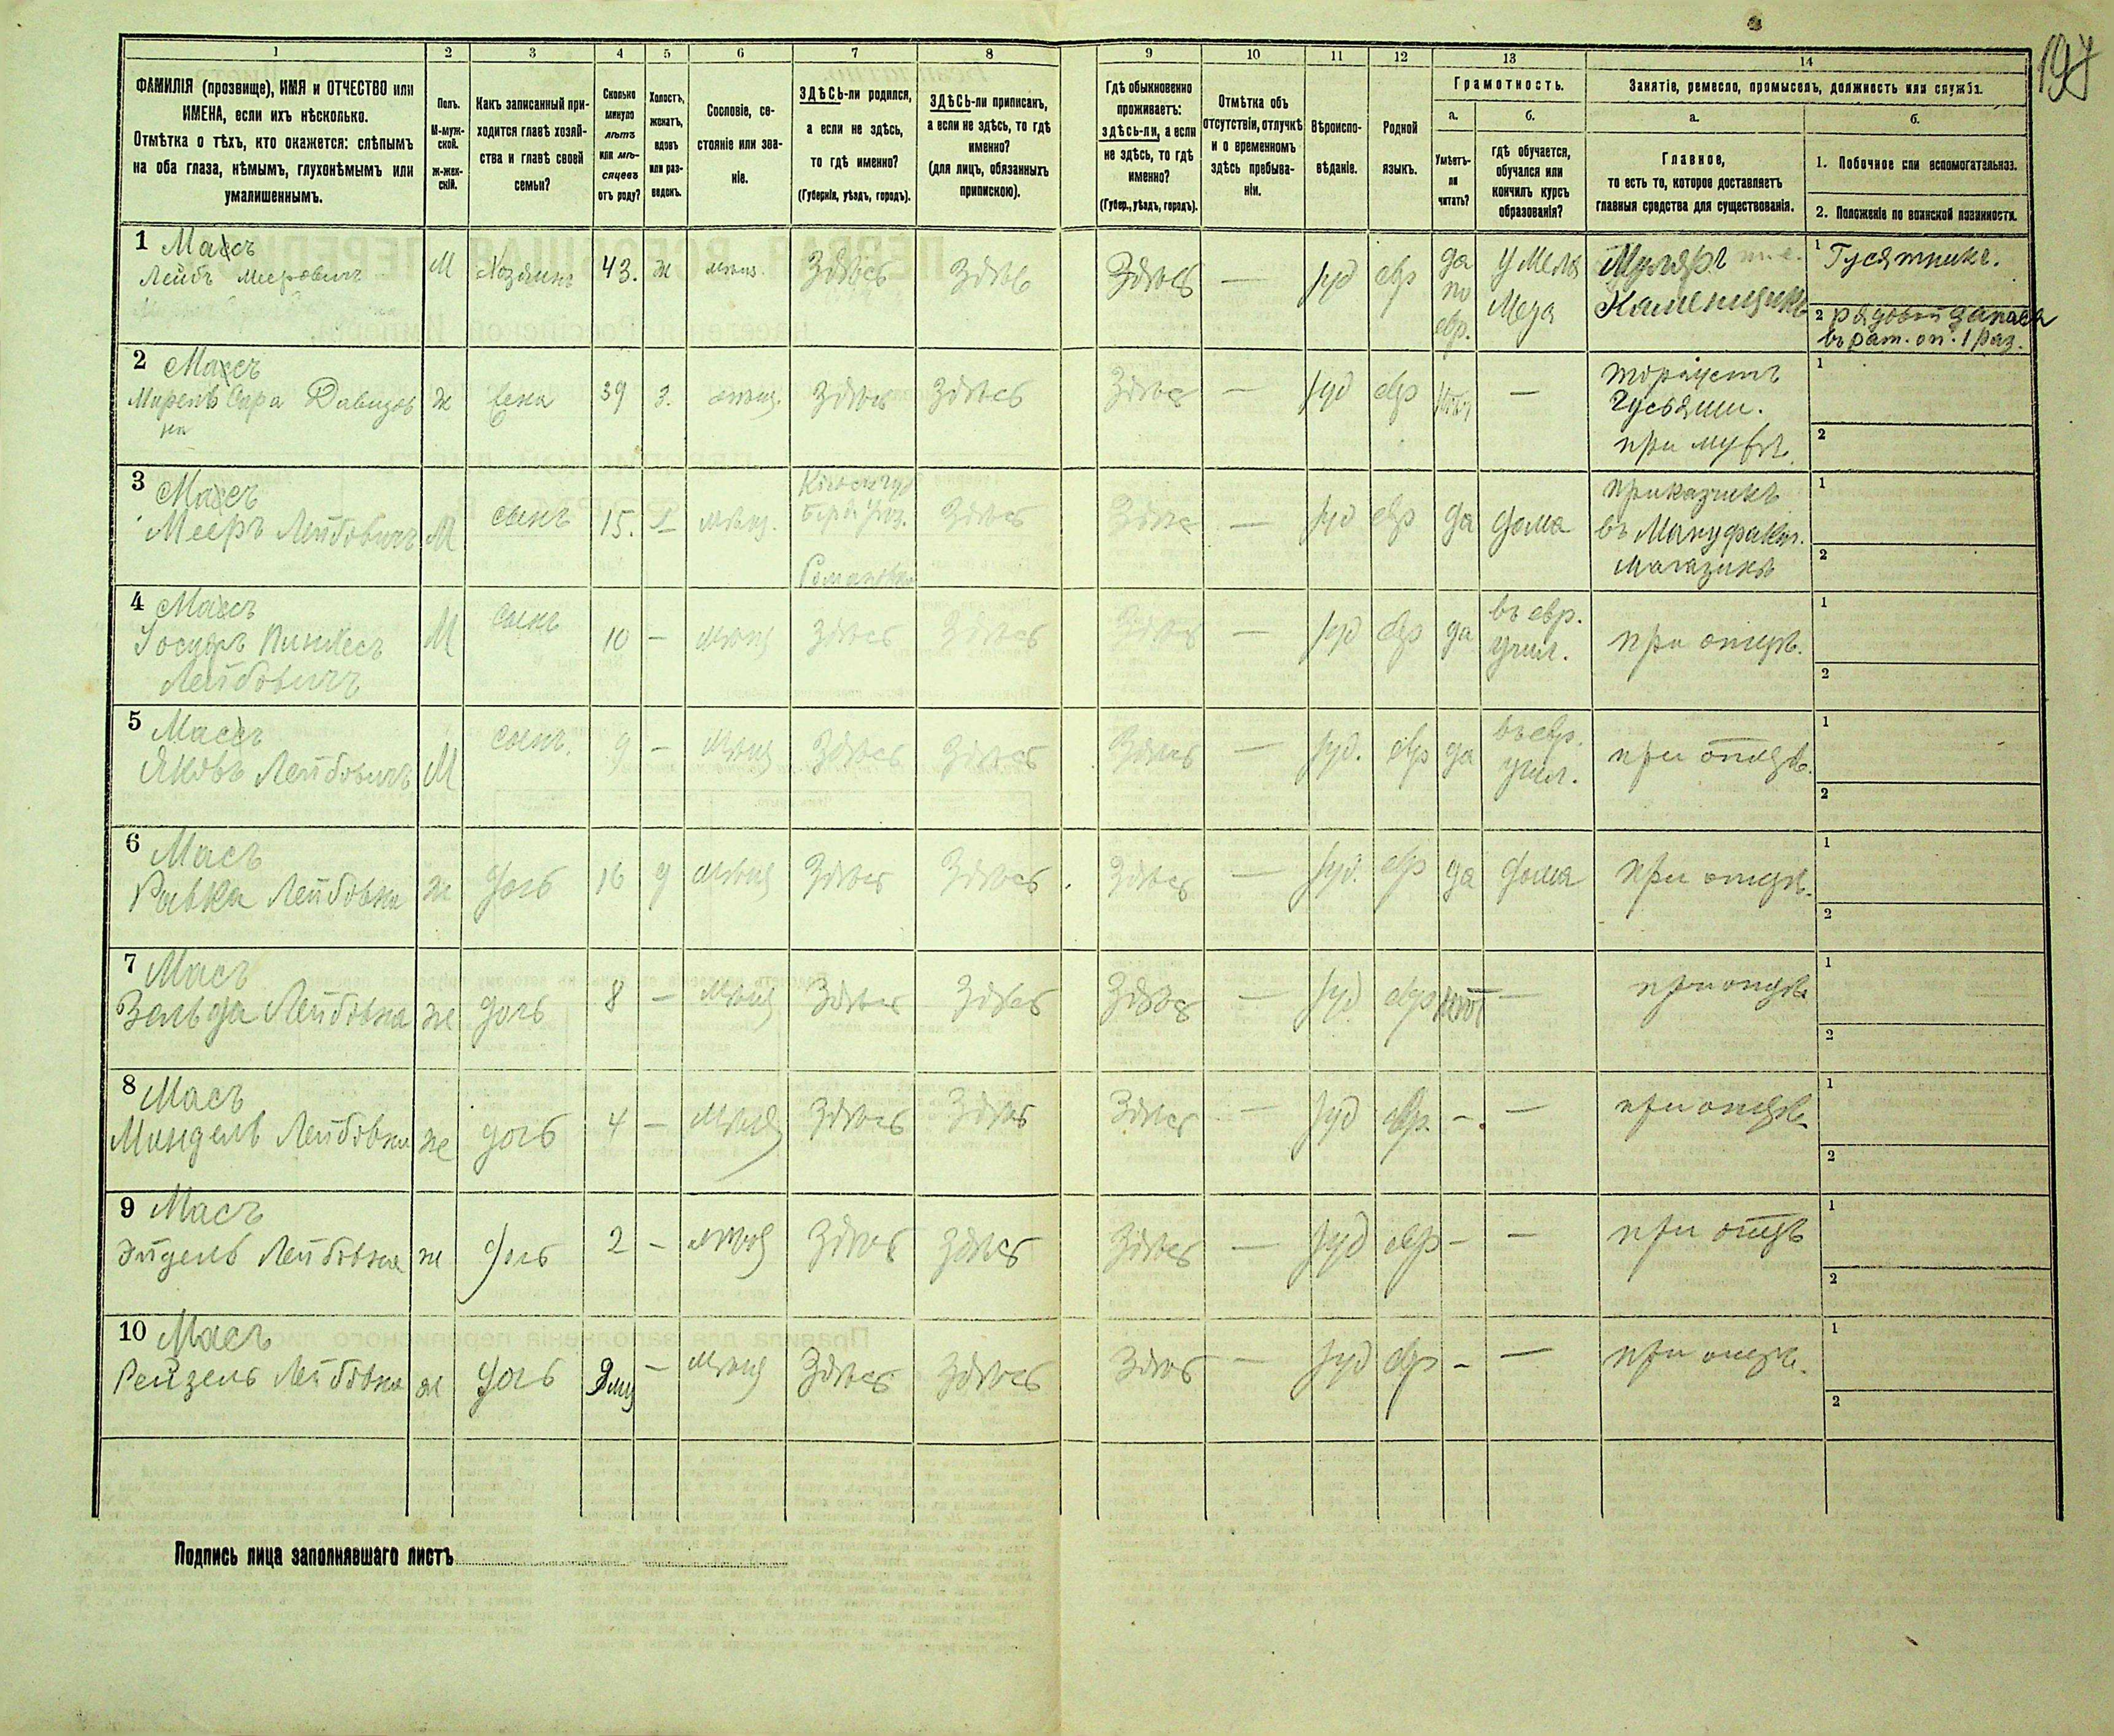 197
1
2
3
4
5
6
7
8
9
10
11
12
13
14
ФАМИЛІЯ (прозвище), ИМЯ и ОТЧЕСТВО или
ИМЕНА, если ихъ нѣсколько.
Отмѣтка о тѣхъ, кто окажется: слѣпымъ
на оба глаза, нѣмымъ, глухонѣмымъ или
умалишеннымъ.
Полъ.
М-муж-
ской.
Ж-жен-
скій.
Какъ записанный при-
ходится главѣ хозяй-
ства и главѣ своей
семьи?
Сколько
минуло
лѣтъ
или мѣ-
сяцевъ
отъ роду?
Холостъ,
женатъ,
вдовъ
или раз-
веденъ.
Сословіе, со-
стояніе или зва-
ніе.
ЗДѢСЬ-ли родился,
а если не здѣсь,
то гдѣ именно?
(Губернія, уѣздъ, городъ).
ЗДѢСЬ-ли приписанъ,
а если не здѣсь, то гдѣ
именно?
(для лицъ, обязанныхъ
припискою).
Гдѣ обыкновенно
проживаетъ:
здѣсь-ли, а если
не здѣсь, то гдѣ
именно?
(Губер., уѣздъ, городъ).
Отмѣтка объ
отсутствіи, отлучкѣ
и о временномъ
здѣсь пребыва-
ніи.
Вѣроиспо-
вѣданіе.
Родной
языкъ.
Грамотность.
а.
Умѣетъ-
ли
читать?
б.
гдѣ обучается,
обучался или
кончилъ курсъ
образованія?
Занятіе, ремесло, промыселъ, должность или служба.
а.
Главное,
то есть то, которое доставляетъ
главныя средства для существованія.
б.
1. Побочное или вспомогательное.
2. Положеніе по воинской повинности.
1 Массъ
Лейбъ Мееровичъ
М Хозяинъ 43. ж мѣщ. Здѣсь Здѣсь Здѣсь — Іуд евр да
по
евр.
у Мела
меда
Муляръ
Каменщикъ
1 Гусятникъ.
2 рядовой запаса
въ рат. оп. 1 раз.
2 Массъ
Сара Давидов
на
ж жена 39 з. мѣщ. Здѣсь Здѣсь Здѣсь — Іуд евр нѣтъ —
торгуетъ
Гусьями.
при мужѣ.
1
2
3 Массъ
Мееръ Лейбовичъ
М сынъ 15. х мѣщ.
Романовка
Здѣсь Здѣсь — Іуд евр да дома
приказчикъ
въ Мануфакт.
магазинѣ
1
2
4 Массъ
Іосифъ Пинкесъ
Лейбовичъ
М сынъ 10 — мѣщ Здѣсь Здѣсь Здѣсь — Іуд евр да
въ евр.
учил.
при отцѣ.
1
2
5 Массъ
Яковъ Лейбовичъ
М сынъ. 9 — мѣщ Здѣсь Здѣсь Здѣсь — Іуд. евр да
въ евр.
учил.
при отцѣ.
1
2
6 Масъ
Ривка Лейбовна
ж дочь 16 д мѣщ Здѣсь Здѣсь Здѣсь — Іуд. евр да дома при отцѣ.
1
2
7 Масъ
Зельда Лейбовна
ж дочь 8 — мѣщ Здѣсь Здѣсь Здѣсь — Іуд евр нѣтъ — при отцѣ
1
2
8 Масъ
Миндель Лейбовна
ж дочь 4 — мѣщ Здѣсь Здѣсь Здѣсь — Іуд евр. — — при отцѣ
1
2
9 Масъ
Эйдель Лейбовна
ж дочь 2 — мѣщ Здѣсь Здѣсь Здѣсь — Іуд евр — — при отцѣ
1
2
10 Масъ
Рейзель Лейбовна
ж дочь — мѣщ Здѣсь Здѣсь Здѣсь — Іуд евр — — при отцѣ.
1
2
Подпись лица заполнявшаго листъ